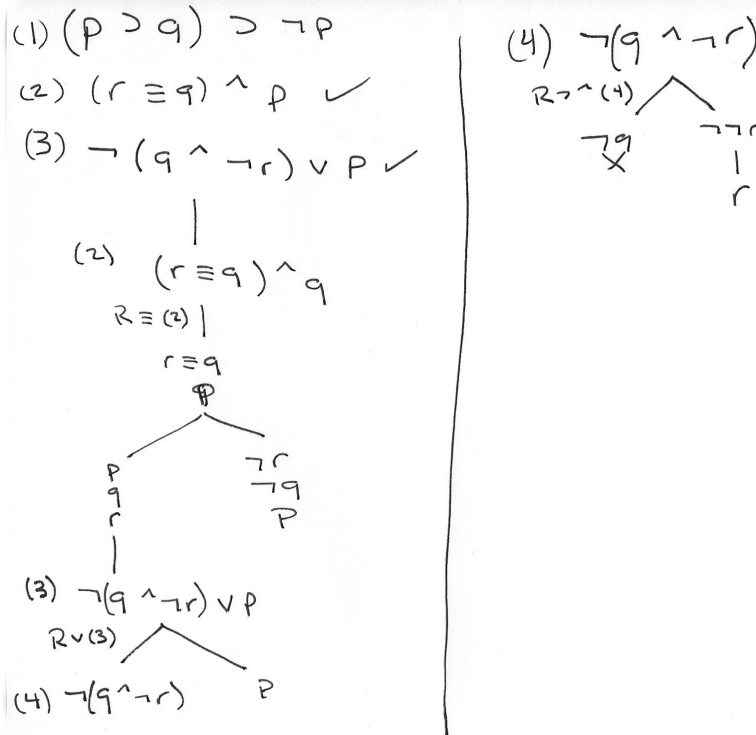 (1) (p ⊃ q) ⊃ ¬p
(2) (r ≡ q) ^ p ✓
(3) ¬ (q ^ ¬r) v p ✓
(2) (r ≡ q) ^ q
R ≡ (2)
r ≡ q
p
p
q
r
¬r
¬q
p
(3) ¬(q ^ ¬r) v p
R v (3)
(4) ¬(q ^ ¬r)
p
(4) ¬(q ^ ¬r)
R ¬ ^ (4)
¬q
x
¬¬r
r